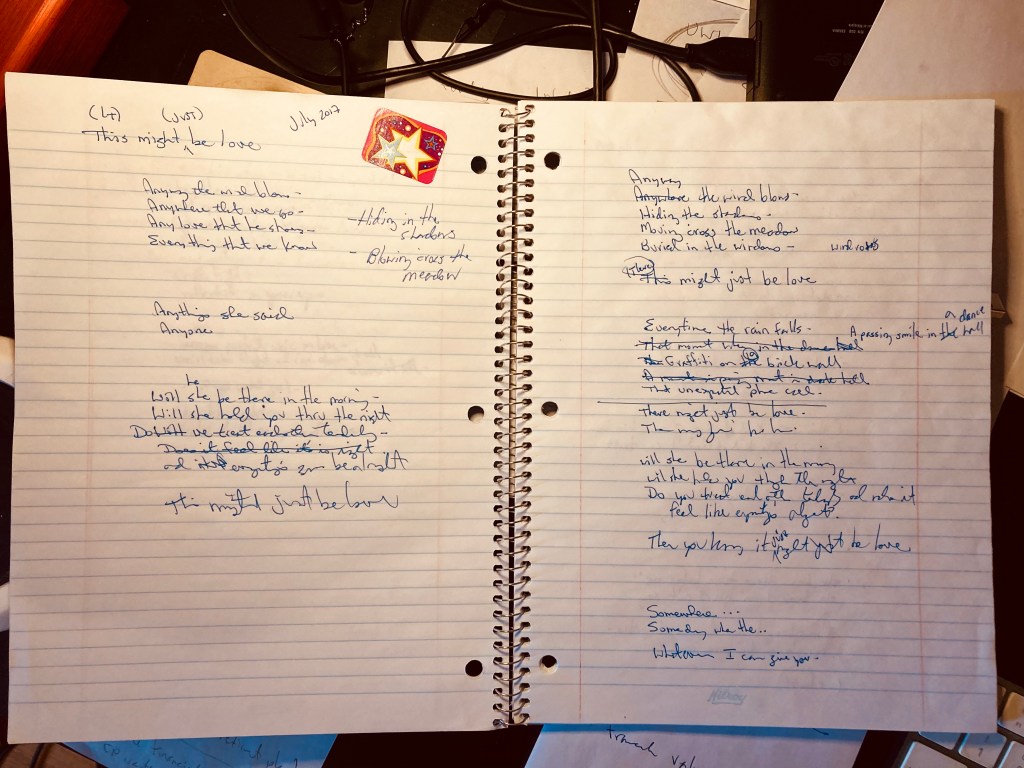 (It) (JUST) July 2017
This might be love
Anyway the wind blows -
Anywhere that we go -
Any love that he shows -
Everything that we know
- Hiding in the shadows
- Blowing cross the meadow
Anything she said
Anyone
he
Will she be there in the morning -
Will she hold you thru the night
Do Will we treat each other tenderly -
Does it feel like it is right
and everything's gonna be alright
this might just be love
Anyway
Anywhere the wind blows -
Hiding the shadows -
Moving cross the meadow
Buried in the windows -
There
This might just be love
Everytime the rain falls -
a dance
A passing smile in the hall
That moment in the
Graffiti on the brick wall
That unexpected phone call -
There might just be love.
There may just be love.
Will she be there in the morning
Will she hold you through the night
Do you treat each other tenderly and does it
feel like everything's alright?
just
Then you know it might just be love
Somewhere ...
Someday when the..
Whatever I can give you -
Hilroy